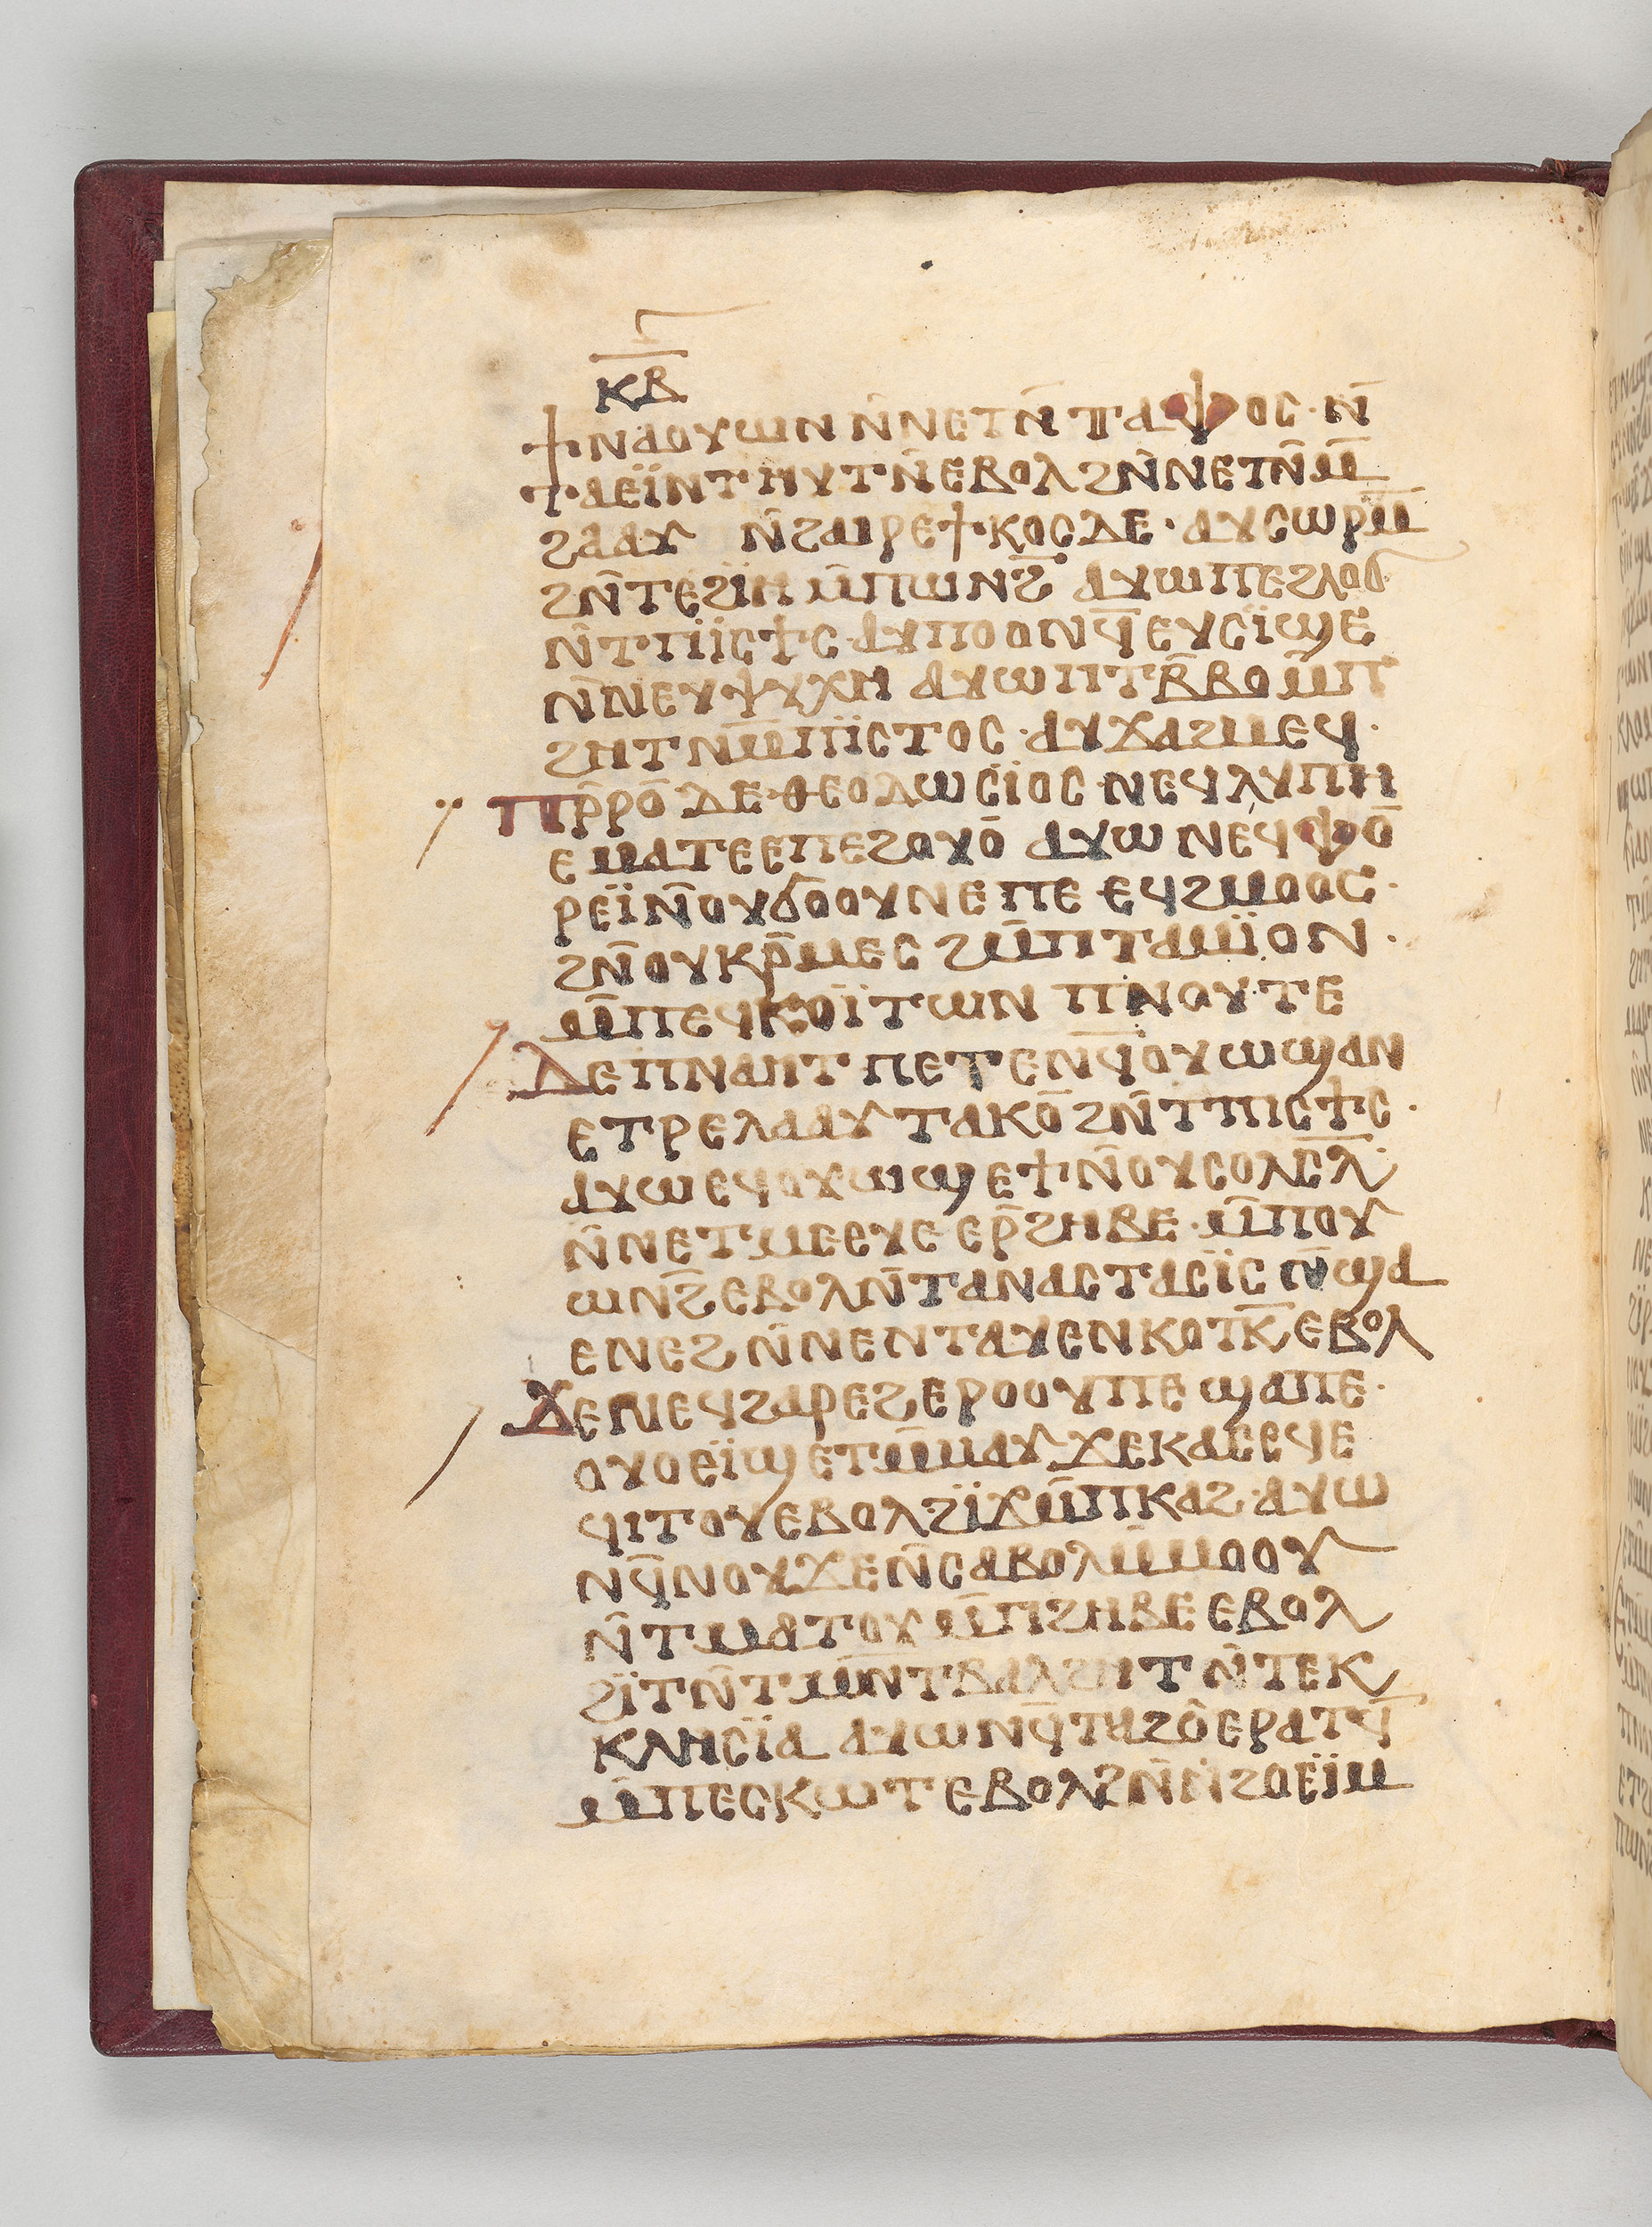 ⲕⲃ
ϯⲛⲁⲟⲩⲱⲛ ⲛ̄ⲛⲉⲧⲛ̄ⲧⲁⲫⲟⲥ · ⲛ̄
ⲧⲁⲉⲓ̈ⲛⲧⲏⲩⲧⲛ̄ⲉⲃⲟⲗϩⲛ̄ⲛⲉⲧⲛ̄ⲙ̄
ϩⲁⲁⲩ ⲛ̄ϩⲁⲓⲣⲉϯⲕⲟⲥⲇⲉ · ⲁⲩⲥⲱⲣⲙ̄
ϩⲛ̄ⲧⲉϩⲓ̈ⲏ ⲙ̄ⲡⲱⲛϩ̄ ⲁⲩⲱⲡⲉϩⲗⲟϭ
ⲛ̄ⲧⲡⲓ̈ⲥϯⲥ · ⲁⲩⲡⲟⲟⲛϥ̄ⲉⲩⲥⲓ̈ϣⲉ
ⲛ̄ⲛⲉⲩⲯⲩⲭⲏ ⲁⲩⲱⲡⲧⲃ̄ⲃⲟ ⲙ̄ⲡ
ϩⲏⲧⲛ̄ⲙ̄ⲡⲓ̈ⲥⲧⲟⲥ · ⲁⲩϫⲁϩⲙⲉϥ ·
ⲡⲣ̄ⲣⲟ̄ ⲇⲉ ⲑⲉⲟⲇⲱⲥⲓ̈ⲟⲥ ⲛⲉϥⲗⲩⲡⲏ
ⲉⲙⲁⲧⲉⲉⲡⲉϩⲟⲩⲟ̄ ⲁⲩⲱ ⲛⲉϥⲫⲟ̄
ⲣⲉⲓ̈ⲛ̄ⲟⲩϭⲟ̄ⲟⲩⲛⲉ ⲡⲉ ⲉϥϩⲙⲟⲟⲥ ·
ϩⲛ̄ⲟⲩⲕⲣ̄ⲙⲉⲥ ϩⲙ̄ⲡⲧⲁⲙⲓ̈ⲟⲛ ·
ⲙ̄ⲡⲉϥⲕⲟⲓ̈ⲧⲱⲛ ⲡⲛⲟⲩⲧⲉ
ⲇⲉⲡⲛⲁⲏⲧ ⲡⲉⲧⲉⲛϥ̄ⲟⲩⲱϣⲁⲛ
ⲉⲧⲣⲉⲗⲁⲁⲩ ⲧⲁⲕⲟ̄ ϩⲛ̄ⲧⲡⲓⲥϯⲥ ·
ⲁⲩⲱⲉϥⲟⲩⲱϣⲉϯⲛ̄ⲟⲩⲥⲟⲗⲥⲗ̄
ⲛ̄ⲛⲉⲧⲙⲉⲉⲩⲉ ⲉⲣ̄ϩⲏⲃⲉ · ⲙ̄ⲡⲟⲩ
ⲱⲛϩ̄ⲉⲃⲟⲗⲛ̄ⲧⲁⲛⲁⲥⲧⲁⲥⲓ̈ⲥ ⲛ̄ϣⲁ
ⲉⲛⲉϩ ⲛ̄ⲛⲉⲛⲧⲁⲩⲉⲛⲕⲟⲧⲕ̄ ⲉⲃⲟⲗ
ϫⲉⲛⲉϥϩⲁⲣⲉϩⲉⲣⲟⲟⲩⲡⲉ ϣⲁⲡⲉ ·
ⲟⲩⲟⲉⲓ̈ϣⲉⲧⲙ̄ⲙⲁⲩ ϫⲉⲕⲁⲥⲉϥⲉ
ϥⲓⲧⲟⲩⲉⲃⲟⲗϩⲓ̈ϫⲙ̄ⲡⲕⲁϩ · ⲁⲩⲱ
ⲛϥ̄ⲛⲟⲩϫⲉⲛ̄ⲥⲁⲃⲟⲗⲙ̄ⲙⲟⲟⲩ
ⲛ̄ⲧⲙⲁⲧⲟⲩ ⲙ̄ⲡϩⲏⲃⲉ ⲉⲃⲟⲗ
ϩⲓ̈ⲧⲛ̄ⲧⲙⲛ̄ⲧⲃⲁⲗϩⲏⲧ ⲛ̄ⲧⲉⲕ
ⲕⲗⲏⲥⲓ̈ⲁ ⲁⲩⲱⲛϥ̄ⲧⲁϩⲟ̄ⲉⲣⲁⲧϥ̄
ⲙ̄ⲡⲉⲥⲕⲱⲧⲉ ⲉⲃⲟⲗϩⲛ̄ⲛ̄ϩⲟⲉⲓ̈ⲙ